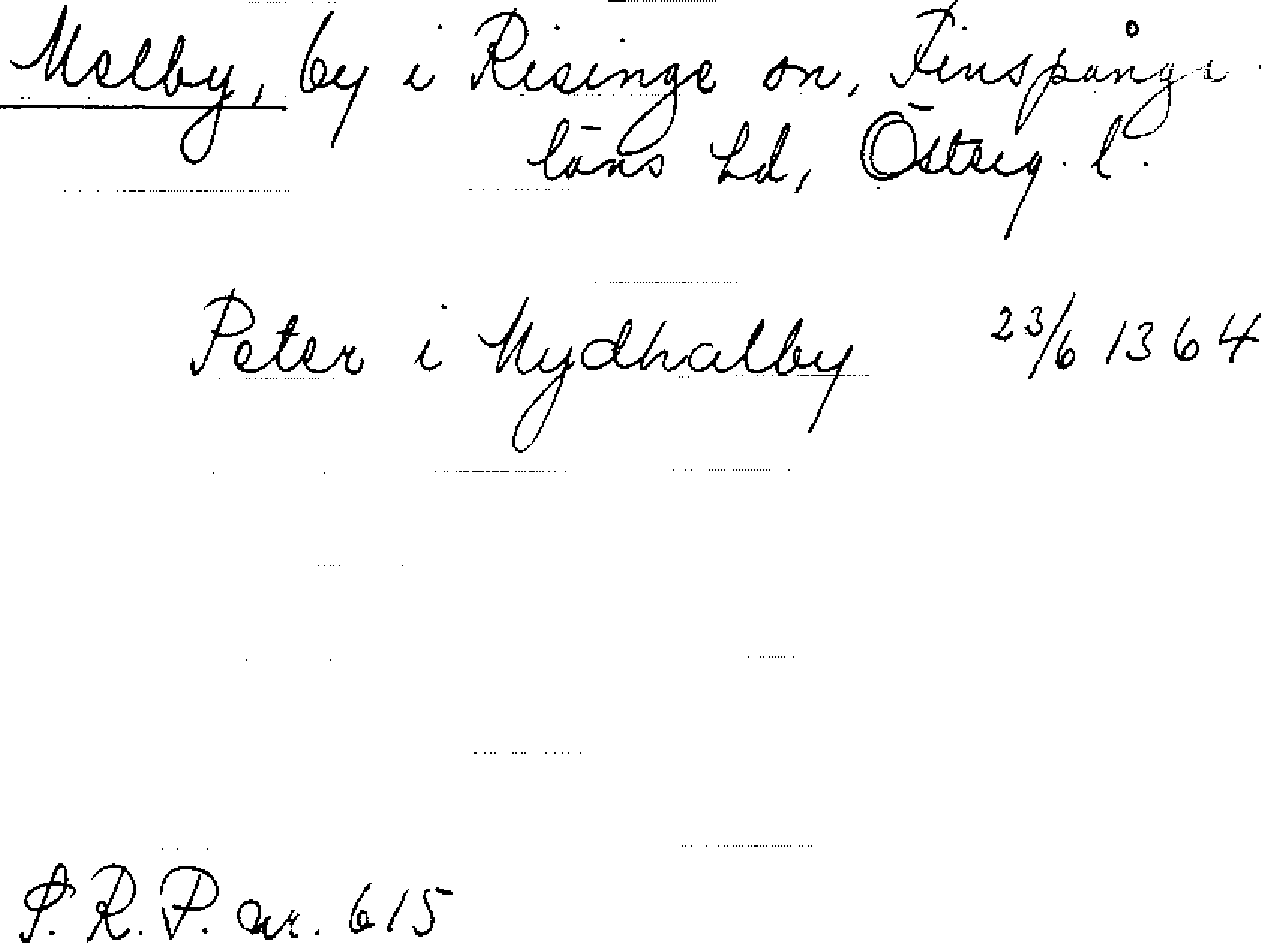 Melby, by i Risinge sn, Finspånga
läns hd, Österg. l.
Peter i Mydhalby 23/6 1364
S. R. P. nr. 615